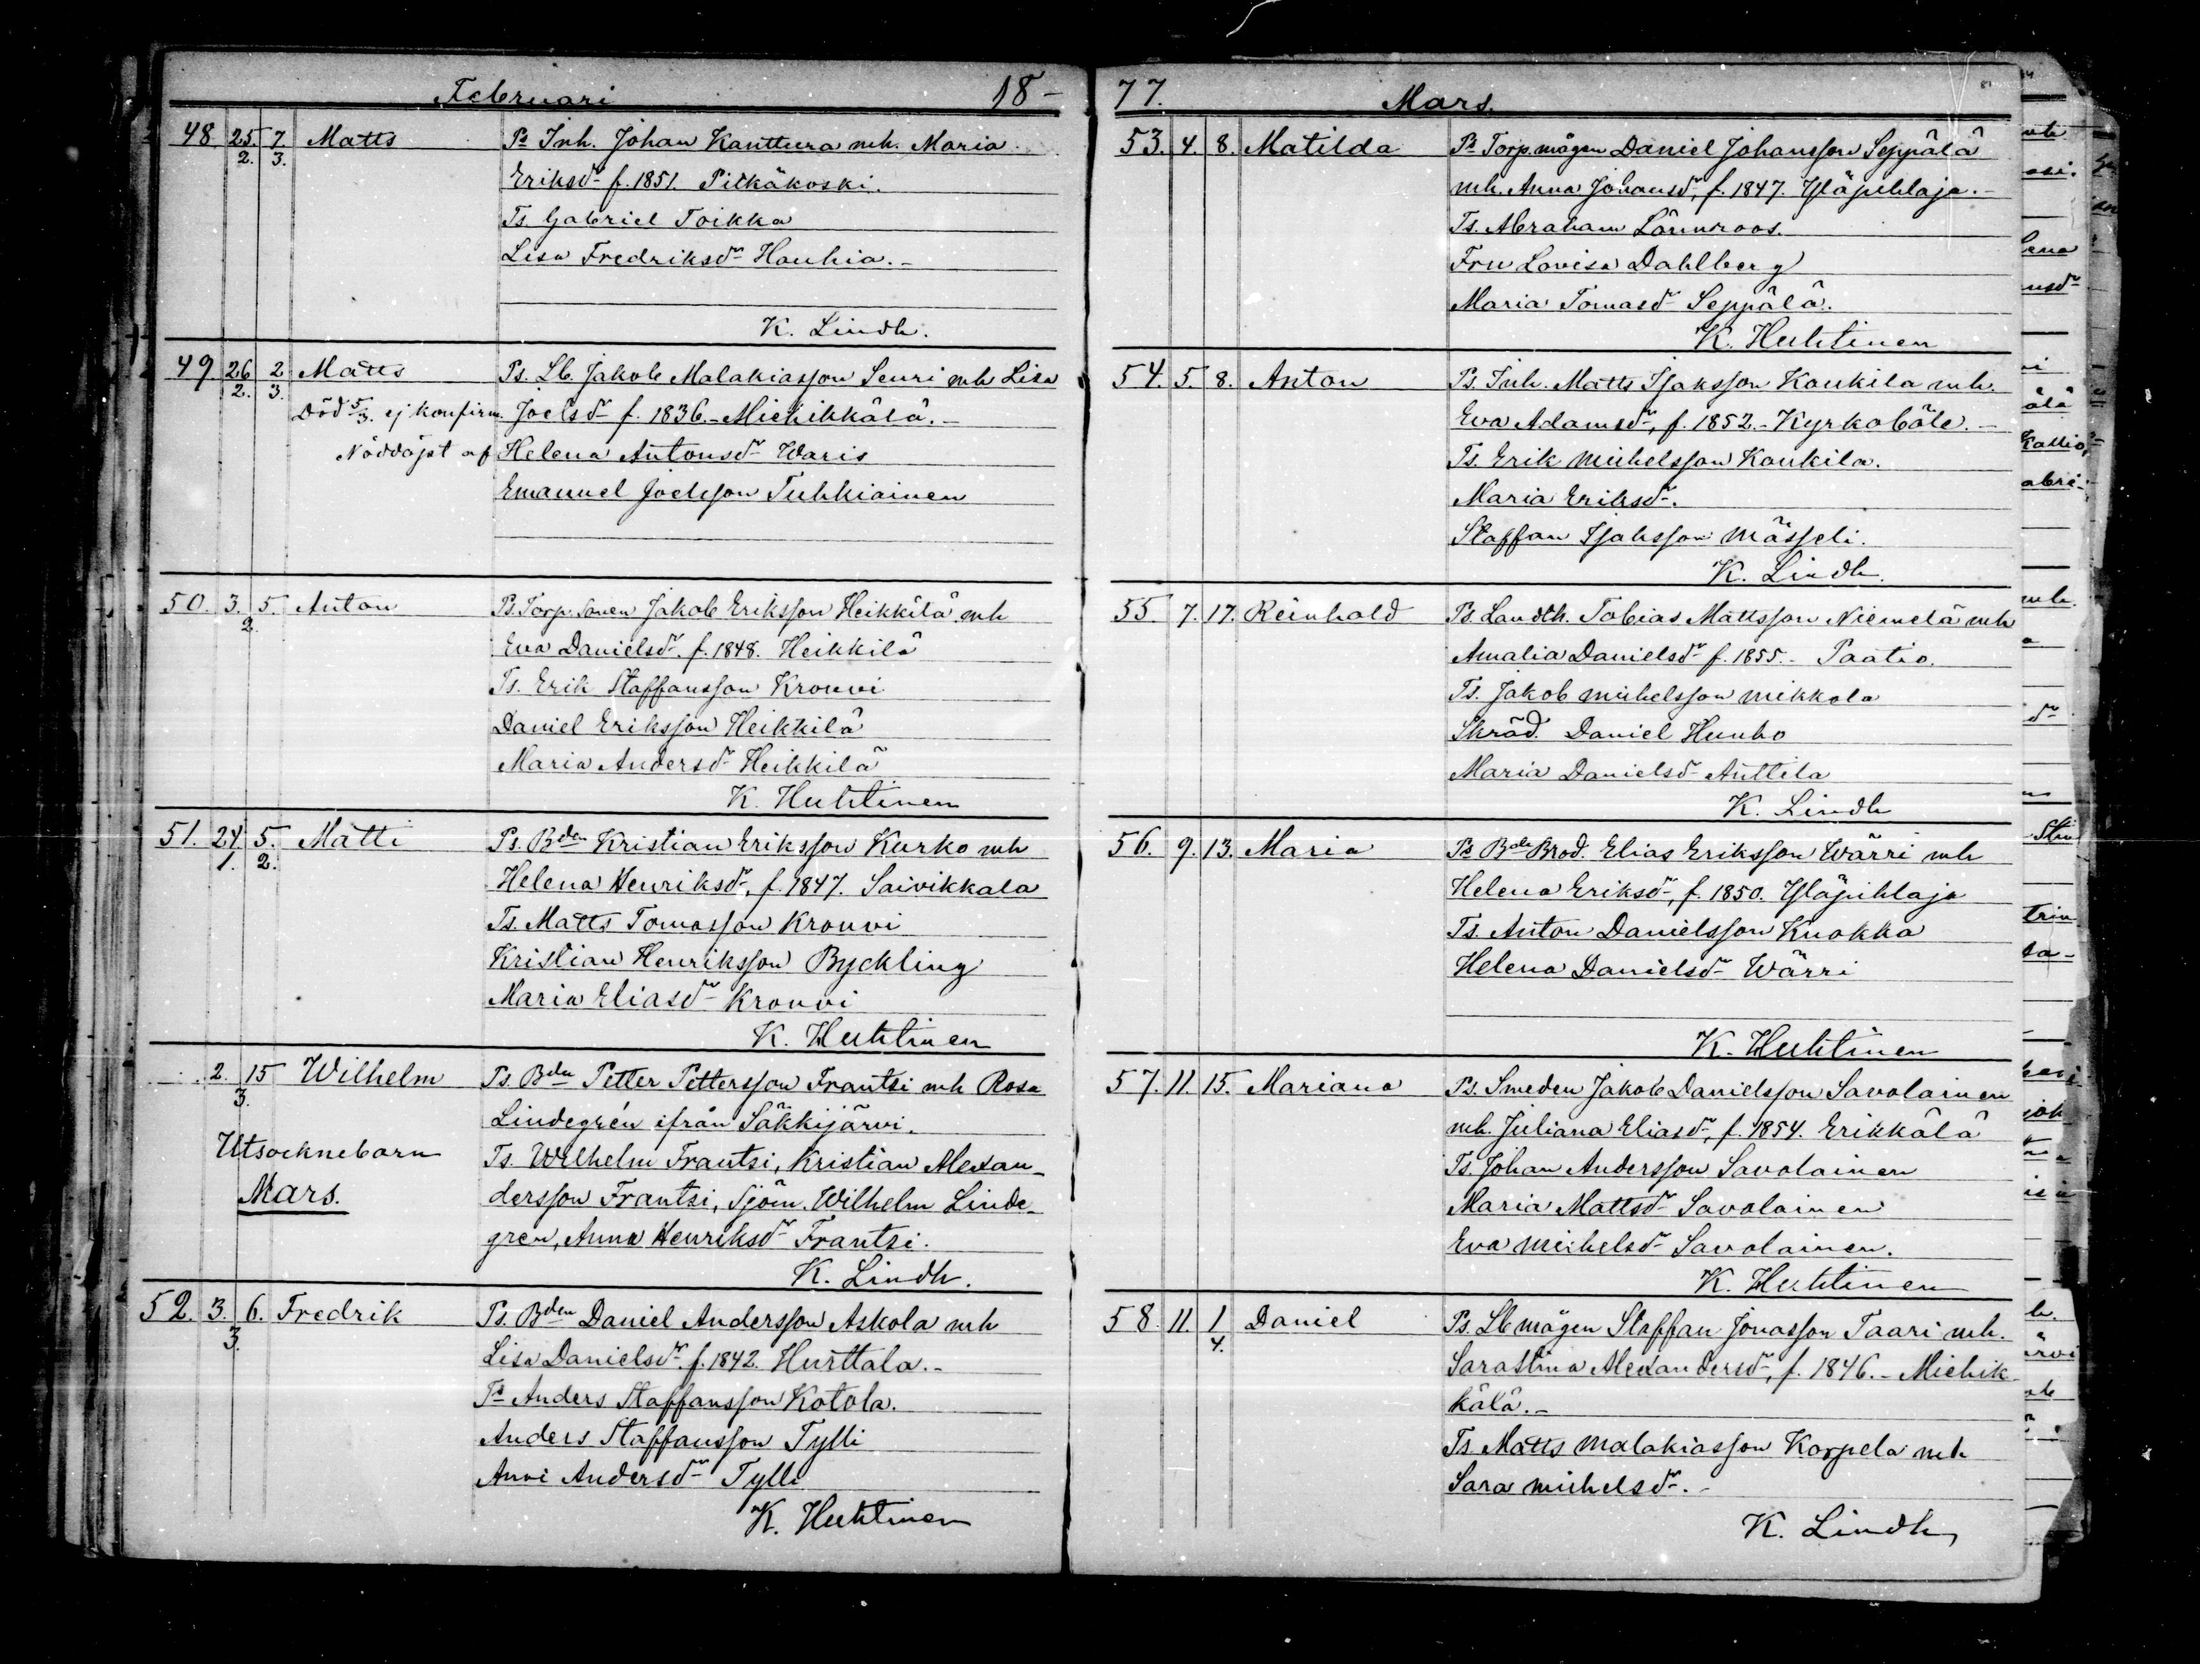 Februari 18-
48. 25. 7. Matts Ps Inh. Johan Kanttura mh. Maria
2. 3. Eriksdr f. 1851. Pitkäkoski.
Ts. Gabriel Toikka
Lisa Fredriksdr Hauhia.-
K. Lindh.
49. 26 2 Matts Ps. Lb. Jakob Malakiasson Seuri mh Lisa
2. 3. Död 5/3. ej konfirm. Joelsdr f. 1836.- Miehikkälä.-
Nöddöpt af Helena Antonsdr Waris
Emanuel Joelsson Tuhkiainen
50. 3. 5. Anton Ps. Torp. sonen Jakob Eriksson Heikkilä mh
2. Eva Danielsdr. f. 1848. Heikkilä
Ts. Erik Staffansson Krouvi
Daniel Eriksson Heikkilä
Maria Andersdr Heikkilä
K. Huhtinen
51. 24. 5. Matti Ps. Bden Kristian Eriksson Kurko mh
1. 2. Helena Henriksdr, f. 1847. Saivikkala
Ts. Matts Tomasson Krouvi
Kristian Henriksson Byckling
Maria Eliasdr Krouvi
K. Huhtinen
2. 15 Wilhelm Ps. Bden Petter Pettersson Frantsi mh Rosa
3. Lindegrén ifrån Säkkijärvi.
Utsocknebarn Ts. Wilhelm Frantsi, Kristian Alexan-
Mars. dersson Frantsi, Sjöm. Wilhelm Linde-
gren, Anna Henriksdr Frantsi.
K. Lindh.
52. 3. 6. Fredrik Ps. Bden Daniel Andersson Askola mh
3. Lisa Danielsdr. f. 1842. Hurttala.-
Ts Anders Staffansson Kotola.
Anders Staffansson Tylli
Anni Andersdr Tylli
K. Huhtinen
77. Mars.
53. 4. 8. Matilda Ps Torp.mågen Daniel Johansson Seppälä
mh. Anna Johansdr, f. 1847. Yläpihlaja.-
Ts. Abraham Lönnroos.
Fru Lovisa Dahlberg
Maria Tomasdr Seppälä.
K. Huhtinen
54. 5. 8. Anton Ps. Inh. Matts Isaksson Koukila mh.
Eva Adamsdr, f. 1852.- Kyrkoböle.-
Ts. Erik Michelsson Koukila.
Maria Eriksdr.
Staffan Isaksson Mässeli.
K. Lindh.
55. 7. 17. Reinhold Ps. Landth. Tobias Mattsson Niemelä mh
Amalia Danielsdr f. 1855.- Paatio.
Ts. Jakob Michelsson Mikkola
Skräd. Daniel Hunho
Maria Danielsdr Anttila
K. Lindh
56. 9. 13. Maria Ps Bde Brod. Elias Eriksson Wärri mh
Helena Eriksdr, f. 1850. Yläpihlaja
Ts. Anton Danielsson Knokka
Helena Danielsdr Wärri
K. Huhtinen
57. 11. 15. Mariana Ps. Smeden Jakob Danielsson Savolainen
mh. Juliana Eliasdr, f. 1854. Erikkälä
Ts. Johan Andersson Savolainen
Maria Mattsdr Savolainen
Eva Michelsdr Savolainen.
K. Huhtinen
58. 11. 1 Daniel Ps. Lb mågen Staffan Jonasson Taari mh.
4. Sarastina Alexandersdr, f. 1846.- Miehik-
kälä.-
Ts. Matts Malakiasson Korpela mh
Sara Michelsdr.-
K. Lindh